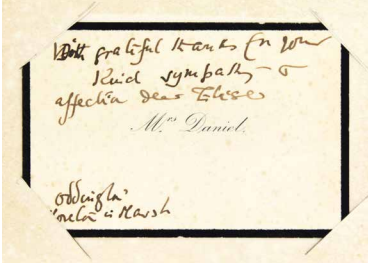 With grateful thanks for your
kind sympathy &
affection dear Elise
Mrs Daniel.
Oddington
Moreton in Marsh